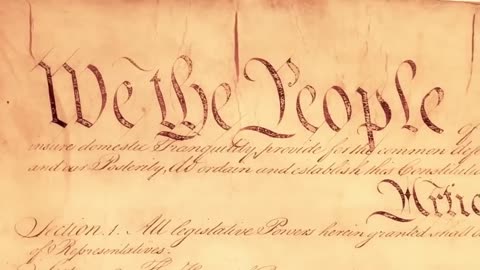 We the People of
insure domestic Tranquility, provide for the common defe
and our Posterity, do ordain and establish this Constitution
Artic
Section. 1. All legislative Powers herein granted shall b
of Representatives.